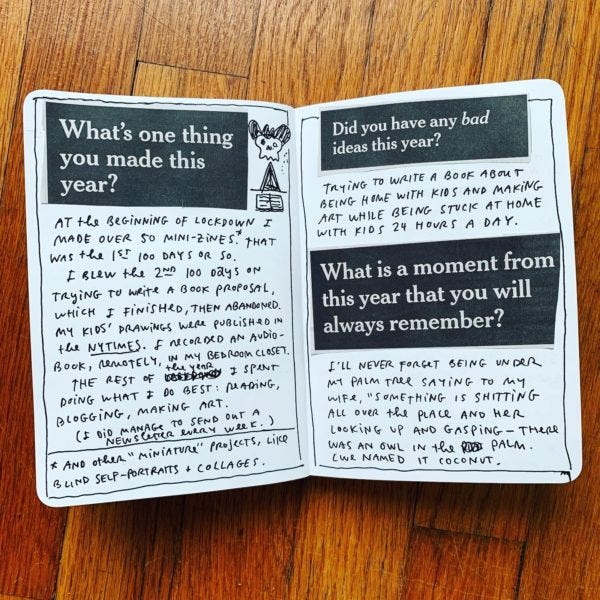 What's one thing
you made this
year?
AT the BEGINNING OF LOCKDOWN I
MADE OVER 50 MINI-ZINES.* THAT
WAS the 1ST 100 DAYS OR SO.
I BLEW the 2ND 100 DAYS ON
TRYING TO WRITE A BOOK PROPOSAL,
WHICH I FINISHED, THEN ABANDONED.
MY KIDS' DRAWINGS WERE PUBLISHED IN
the NYTIMES. I RECORDED AN AUDIO-
BOOK, REMOTELY, IN MY BEDROOM CLOSET.
THE REST OF the year I SPENT
DOING WHAT I DO BEST: READING,
BLOGGING, MAKING ART.
(I DID MANAGE TO SEND OUT A
NEWSLETTER every week.)
* AND OTHER "MINIATURE" PROJECTS, LIKE
BLIND SELF-PORTRAITS + COLLAGES.
Did you have any bad
ideas this year?
TRYING TO WRITE A BOOK ABOUT
BEING HOME WITH KIDS AND MAKING
ART WHILE BEING STUCK AT HOME
WITH KIDS 24 HOURS A DAY.
What is a moment from
this year that you will
always remember?
I'LL NEVER FORGET BEING UNDER
MY PALM TREE SAYING TO MY
WIFE, "SOMETHING IS SHITTING
ALL OVER the PLACE AND HER
LOOKING UP AND GASPING — THERE
WAS AN OWL IN the PALM.
(WE NAMED IT COCONUT.